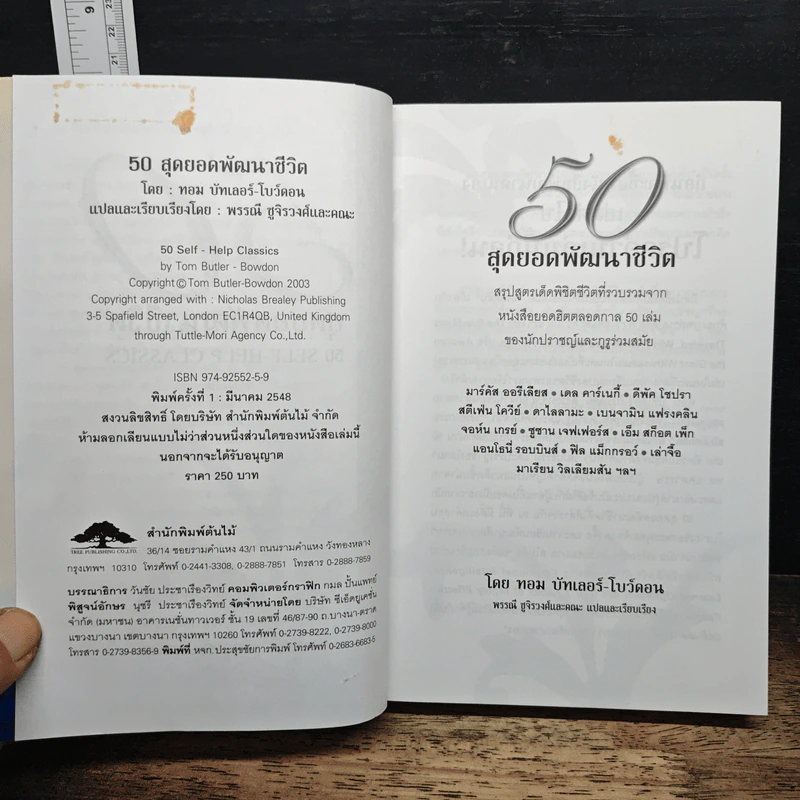 50 สุดยอดพัฒนาชีวิต
โดย : ทอม บัทเลอร์-โบว์ดอน
แปลและเรียบเรียงโดย : พรรณี ชูจิรวงศ์และคณะ
50 Self - Help Classics
by Tom Butler - Bowdon
Copyright©Tom Butler-Bowdon 2003
Copyright arranged with : Nicholas Brealey Publishing
3-5 Spafield Street, London EC1R4QB, United Kingdom
through Tuttle-Mori Agency Co.,Ltd.
ISBN 974-92552-5-9
พิมพ์ครั้งที่ 1 : มีนาคม 2548
สงวนลิขสิทธิ์ โดยบริษัท สำนักพิมพ์ต้นไม้ จำกัด
ห้ามลอกเลียนแบบไม่ว่าส่วนหนึ่งส่วนใดของหนังสือเล่มนี้
นอกจากจะได้รับอนุญาต
ราคา 250 บาท
TREE PUBLISHING CO.,LTD.
สำนักพิมพ์ต้นไม้
36/14 ซอยรามคำแหง 43/1 ถนนรามคำแหง วังทองหลาง
กรุงเทพฯ 10310 โทรศัพท์ 0-2441-3308, 0-2888-7851 โทรสาร 0-2888-7859
บรรณาธิการ วันชัย ประชาเรืองวิทย์ คอมพิวเตอร์กราฟิก กมล ปั้นแพทย์
พิสูจน์อักษร นุชรี ประชาเรืองวิทย์ จัดจำหน่ายโดย บริษัท ซีเอ็ดยูเคชั่น
จำกัด (มหาชน) อาคารเนชั่นทาวเวอร์ ชั้น 19 เลขที่ 46/87-90 ถ.บางนา-ตราด
แขวงบางนา เขตบางนา กรุงเทพฯ 10260 โทรศัพท์ 0-2739-8222, 0-2739-8000
โทรสาร 0-2739-8356-9 พิมพ์ที่ หจก.ประสุขชัยการพิมพ์ โทรศัพท์ 0-2683-6683-5
50
สุดยอดพัฒนาชีวิต
สรุปสูตรเด็ดพิชิตชีวิตที่รวบรวมจาก
หนังสือยอดฮิตตลอดกาล 50 เล่ม
ของนักปราชญ์และกูรูร่วมสมัย
มาร์คัส ออรีเลียส • เดล คาร์เนกี้ • ดีพัค โชปรา
สตีเฟ่น โควีย์ • ดาไลลามะ • เบนจามิน แฟรงคลิน
จอห์น เกรย์ • ซูซาน เจฟเฟอร์ส • เอ็ม สก็อต เพ็ก
แอนโธนี่ รอบบินส์ • ฟิล แม็กกรอว์ • เล่าจื๊อ
มาเรียน วิลเลียมสัน ฯลฯ
โดย ทอม บัทเลอร์-โบว์ดอน
พรรณี ชูจิรวงศ์และคณะ แปลและเรียบเรียง